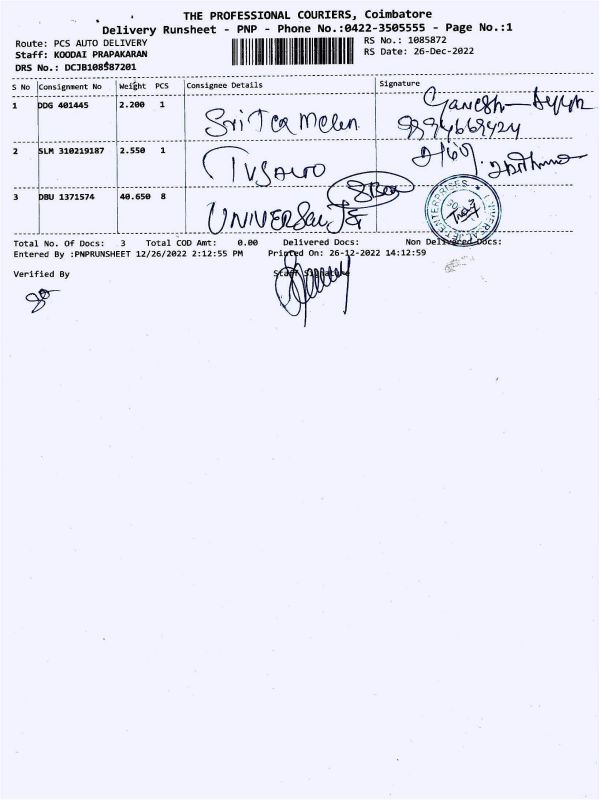 THE PROFESSIONAL COURIERS, Coimbatore
Delivery Runsheet - PNP - Phone No.:0422-3505555 - Page No.:1
Route: PCS AUTO DELIVERY
Staff: KOODAI PRAPAKARAN
DRS No.: DCJB108587201
RS No.: 1085872
RS Date: 26-Dec-2022
S No Consignment No Weight PCS Consignee Details Signature
1 DDG 401445 2.200 1
Ganesh
2 SLM 310219187 2.550 1 TVS AUTO
3 DBU 1371574 40.650 8 UNIVERSAL
ENTERPRISES
Total No. Of Docs: 3 Total COD Amt: 0.00 Delivered Docs: Non Delivered Docs:
Entered By :PNPRUNSHEET 12/26/2022 2:12:55 PM Printed On: 26-12-2022 14:12:59
Verified By Staff Signature